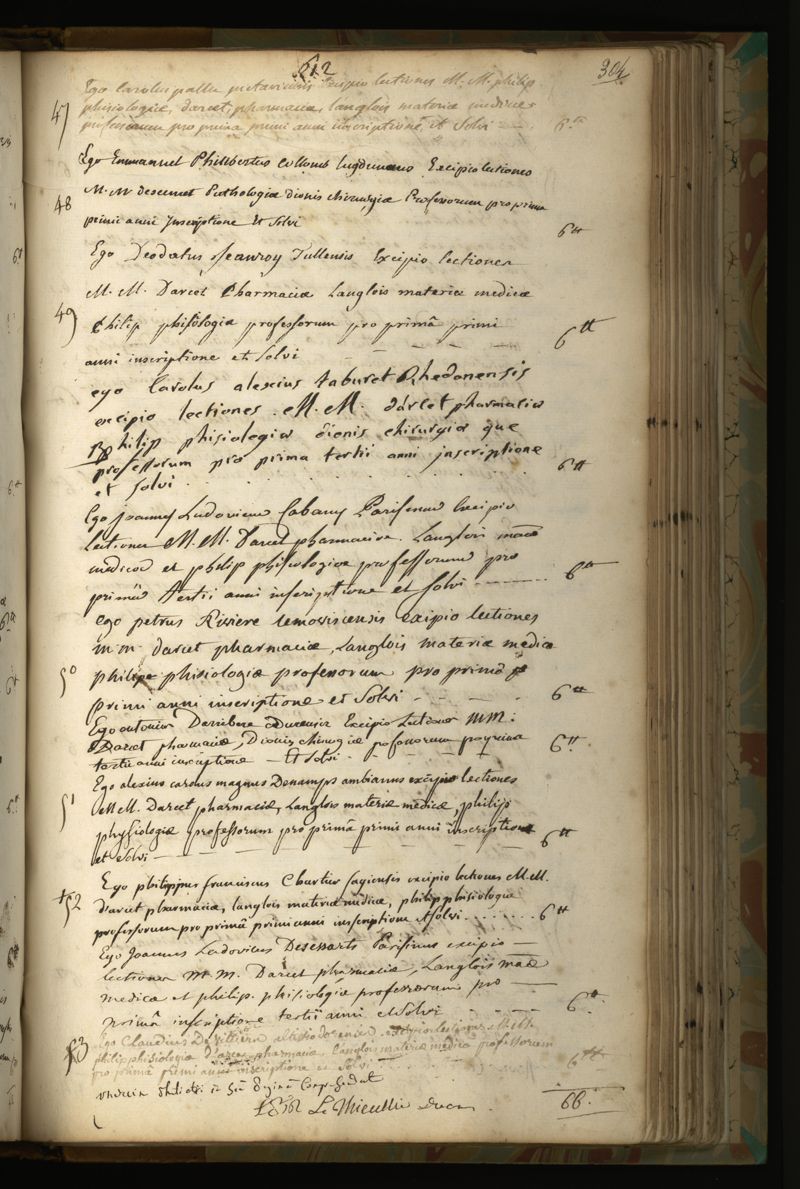 612
304
Ego carolus excipio lectiones M. M. philip
47 phisiologiæ, darcet, pharmaciæ, langlois materiæ medicæ
professorum pro prima primi anni inscriptione, et Solvi 6.tt
Ego Emmanuel Philibertus collomb lugdunaeus Excipio lectiones
48 M. M descemet Pathologiæ dionis chirurgiæ Professorum pro prima
primi anni Inscriptione Et Solvi 6tt
Ego Deodatus Jeanroy Tullensis Excipio lectiones
M. M. Darcet Pharmaciæ Langlois materiæ medicæ
49 Philip phisiologiæ professorum pro primâ primi
anni inscriptione et Solvi 6tt
ego Carolus alexius taburet Rhedonensis
excipio lectiones. M. M. darcet pharmaciæ
philip phisiologiæ dionis chirurgiæ que
professorum pro prima tertii anni inscriptione
et Solvi 6tt
Ego Joannes Ludovicus Cabany Parisinus Excipio
lectiones M. M. Darcet pharmaciæ. Langlois
medicæ et philip phisiologiæ professorum pro
primâ tertii anni inscriptione et Solvi 6tt
ego petrus Riviere lemovicensis excipio lectiones
m. m. darcet pharmaciæ, Langlois materiæ medicæ
50 philip phisiologiæ professorum pro primâ
primi anni inscriptione et Solvi 6tt
Ego antonius Darribere Excipio Lectiones MM:
Darcet pharmaciæ, Dionis chirurgiæ professorum pro prima
tertii anni inscriptione Et Solvi 6tt
Ego alexius carolus magnus Denamps ambianus excipio lectiones
51 MM. Darcet pharmaciæ, Langlois materiæ medicæ, philip
physiologiæ professorum pro primâ primi anni inscriptione
et Solvi 6tt
Ego philippus franciscus Chartier sagiensis excipio lectiones M.M.
52 d'arcet pharmaciæ, langlois materiæ medicæ, philip phisiologiæ
professorum pro primâ primi anni inscriptione et solvi 6tt
Ego Joannes Ludovicus Desessarts Parisinus excipio
lectiones M. M. Darcet pharmaciæ, Langlois
medicæ et philip. phisiologiæ professorum pro
primâ inscriptione tertii anni et Solvi 6tt
53 Ego Claudius De Villiers altissiodorensis excipio lectiones M.M.
philip phisiologiæ d'arcet pharmaciæ, langlois materiæ medicæ professorum
pro primâ primi anni inscriptione et Solvi 6tt
Le Thieullier decan 66.